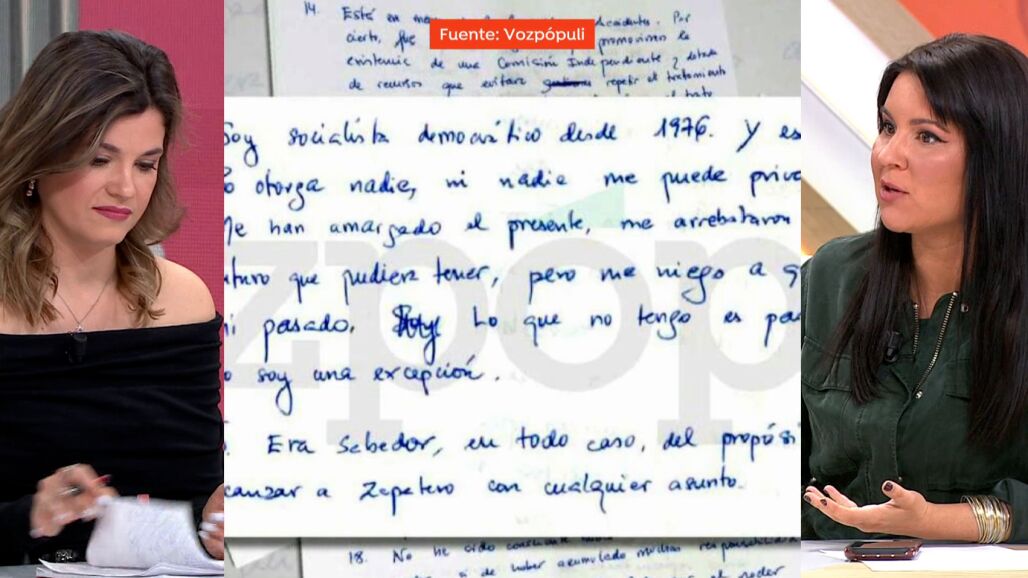 Fuente: Vozpópuli
14. Está en accidentes. Por
cierto, que promovieron la
existencia de una Comisión Independiente y dotada
de recursos que evitara repetir el tratamiento
el trato
Soy socialista democrático desde 1976. Y es
lo otorga nadie, ni nadie me puede priva
Me han amargado el presente, me arrebataron
uturo que pudiera tener, pero me niego a q
mi pasado. Lo que no tengo es pa
o soy una excepción.
. Era sabedor, en todo caso, del propósi
canzar a Zapatero con cualquier asunto.
zpóp
18. No he sido
si de haber acumulado muchas responsabilidad
el poder